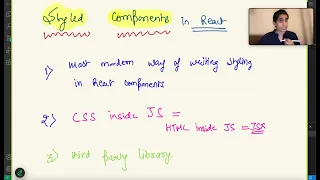 Styled Components in React
1) Most modern way of writing styling
in React components
2) CSS inside JS =
HTML inside JS = JSX
3) third party library.